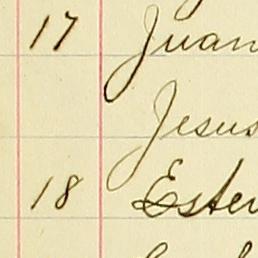 17 Juan
Jesus
18 Ester